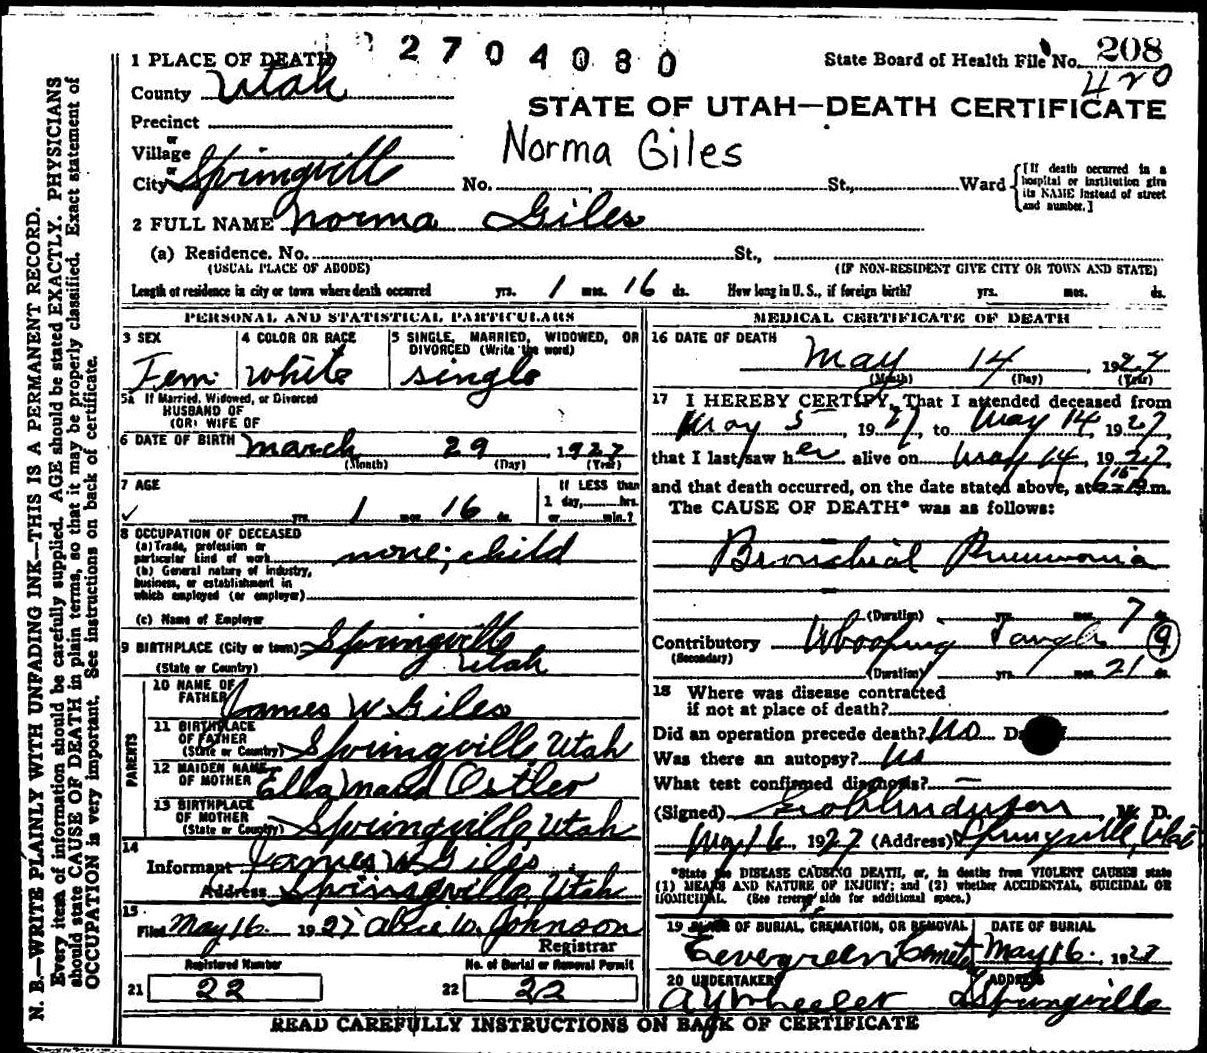 2704080
State Board of Health File No. 208
420
1 PLACE OF DEATH
County Utah
STATE OF UTAH—DEATH CERTIFICATE
Precinct
or
Village
or
Norma Giles
City Springville No. St., Ward
[If death occurred in a hospital or institution give its NAME instead of street and number.]
2 FULL NAME Norma Giles
(a) Residence. No. St.,
(USUAL PLACE OF ABODE) (IF NON-RESIDENT GIVE CITY OR TOWN AND STATE)
Length of residence in city or town where death occurred yrs. 1 mos. 16 ds. How long in U. S., if foreign birth? yrs. mos. ds.
PERSONAL AND STATISTICAL PARTICULARS
3 SEX 4 COLOR OR RACE 5 SINGLE, MARRIED, WIDOWED, OR DIVORCED (Write the word)
Fem. white single
5a If Married, Widowed, or Divorced
HUSBAND OF
(OR) WIFE OF
6 DATE OF BIRTH March 29, 1927
(Month) (Day) (Year)
7 AGE If LESS than
1 day, hrs.
yrs. 1 mos. 16 ds. or min.?
8 OCCUPATION OF DECEASED
(a) Trade, profession or
particular kind of work none; child
(b) General nature of industry,
business, or establishment in
which employed (or employer)
(c) Name of Employer
9 BIRTHPLACE (City or town) Springville
(State or Country) Utah
PARENTS
10 NAME OF
FATHER James W Giles
11 BIRTHPLACE
OF FATHER
(State or Country) Springville Utah
12 MAIDEN NAME
OF MOTHER Ella Maud Ostler
13 BIRTHPLACE
OF MOTHER
(State or Country) Springville, Utah
14
Informant James W Giles
Address Springville, Utah
15
Filed May 16. 1927
Johnson
Registrar
Registered Number No. of Burial or Removal Permit
21 22 22 22
MEDICAL CERTIFICATE OF DEATH
16 DATE OF DEATH
May 14, 1927
(Month) (Day) (Year)
17 I HEREBY CERTIFY, That I attended deceased from
May 5 1927, to May 14, 1927,
that I last saw her alive on May 14, 1927
and that death occurred, on the date stated above, at m.
The CAUSE OF DEATH* was as follows:
Bronchial Pneumonia
(Duration) yrs. mos. 7 ds.
Contributory Whooping Cough 9
(Secondary)
(Duration) yrs. mos. 21 ds.
18 Where was disease contracted
if not at place of death?
Did an operation precede death? No
Was there an autopsy? No
What test confirmed diagnosis? —
(Signed) M. D.
May 16, 1927 (Address) Springville, Utah
*State the DISEASE CAUSING DEATH, or, in deaths from VIOLENT CAUSES state
(1) MEANS AND NATURE OF INJURY; and (2) whether ACCIDENTAL, SUICIDAL OR
HOMICIDAL. (See reverse side for additional space.)
19 PLACE OF BURIAL, CREMATION, OR REMOVAL DATE OF BURIAL
Evergreen Cemetery May 16, 1927
20 UNDERTAKER ADDRESS
A Y Wheeler Springville
READ CAREFULLY INSTRUCTIONS ON BACK OF CERTIFICATE
N. B.—WRITE PLAINLY WITH UNFADING INK—THIS IS A PERMANENT RECORD.
Every item of information should be carefully supplied. AGE should be stated EXACTLY. PHYSICIANS
should state CAUSE OF DEATH in plain terms, so that it may be properly classified. Exact statement of
OCCUPATION is very important. See instructions on back of certificate.